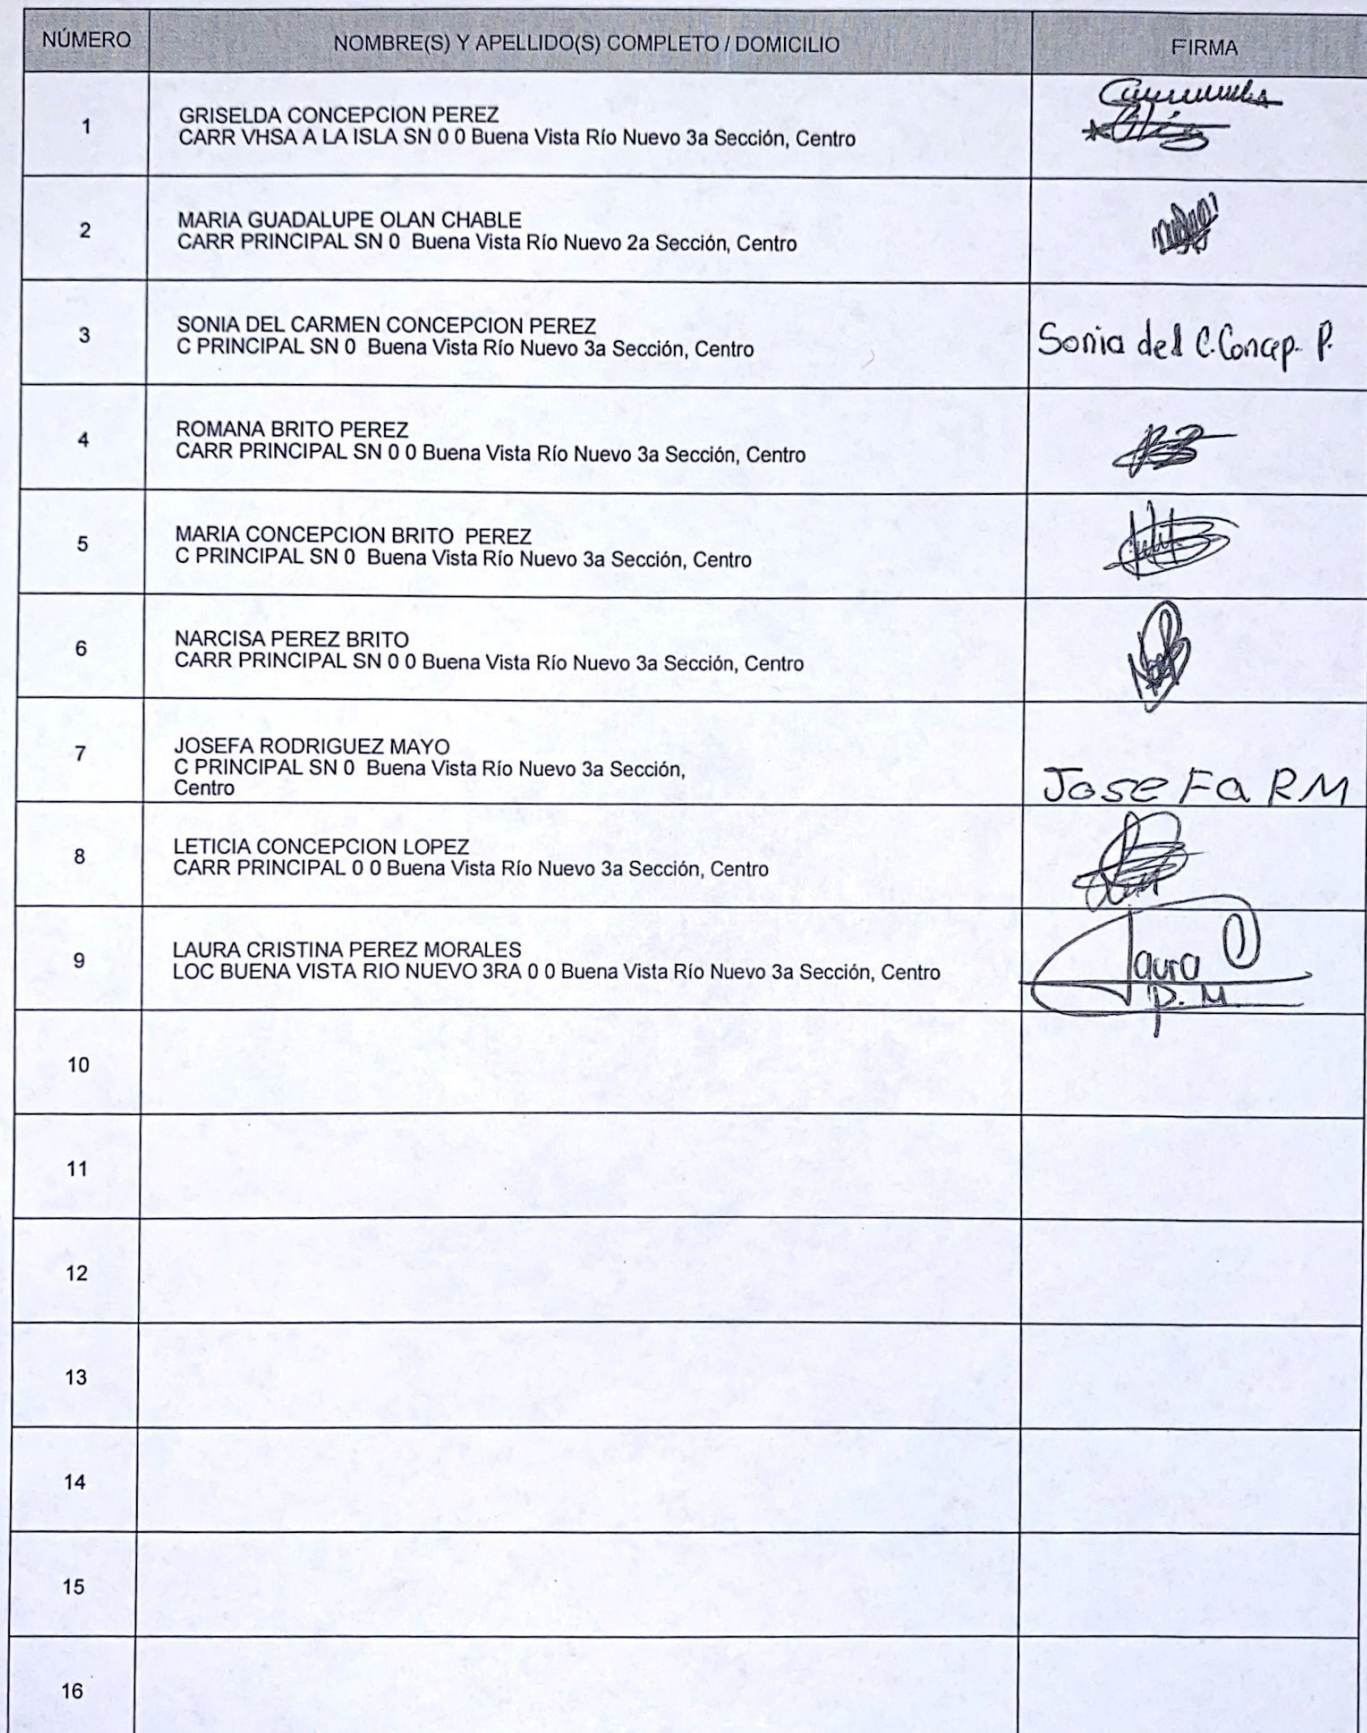 NÚMERO NOMBRE(S) Y APELLIDO(S) COMPLETO / DOMICILIO FIRMA
1 GRISELDA CONCEPCION PEREZ
CARR VHSA A LA ISLA SN 0 0 Buena Vista Río Nuevo 3a Sección, Centro
2 MARIA GUADALUPE OLAN CHABLE
CARR PRINCIPAL SN 0  Buena Vista Río Nuevo 2a Sección, Centro
3 SONIA DEL CARMEN CONCEPCION PEREZ
C PRINCIPAL SN 0  Buena Vista Río Nuevo 3a Sección, Centro
Sonia del C. Concep. P.
4 ROMANA BRITO PEREZ
CARR PRINCIPAL SN 0 0 Buena Vista Río Nuevo 3a Sección, Centro
5 MARIA CONCEPCION BRITO  PEREZ
C PRINCIPAL SN 0  Buena Vista Río Nuevo 3a Sección, Centro
6 NARCISA PEREZ BRITO
CARR PRINCIPAL SN 0 0 Buena Vista Río Nuevo 3a Sección, Centro
7 JOSEFA RODRIGUEZ MAYO
C PRINCIPAL SN 0  Buena Vista Río Nuevo 3a Sección,
Centro
JoseFa RM
8 LETICIA CONCEPCION LOPEZ
CARR PRINCIPAL 0 0 Buena Vista Río Nuevo 3a Sección, Centro
9 LAURA CRISTINA PEREZ MORALES
LOC BUENA VISTA RIO NUEVO 3RA 0 0 Buena Vista Río Nuevo 3a Sección, Centro
Laura
P. M.
10
11
12
13
14
15
16